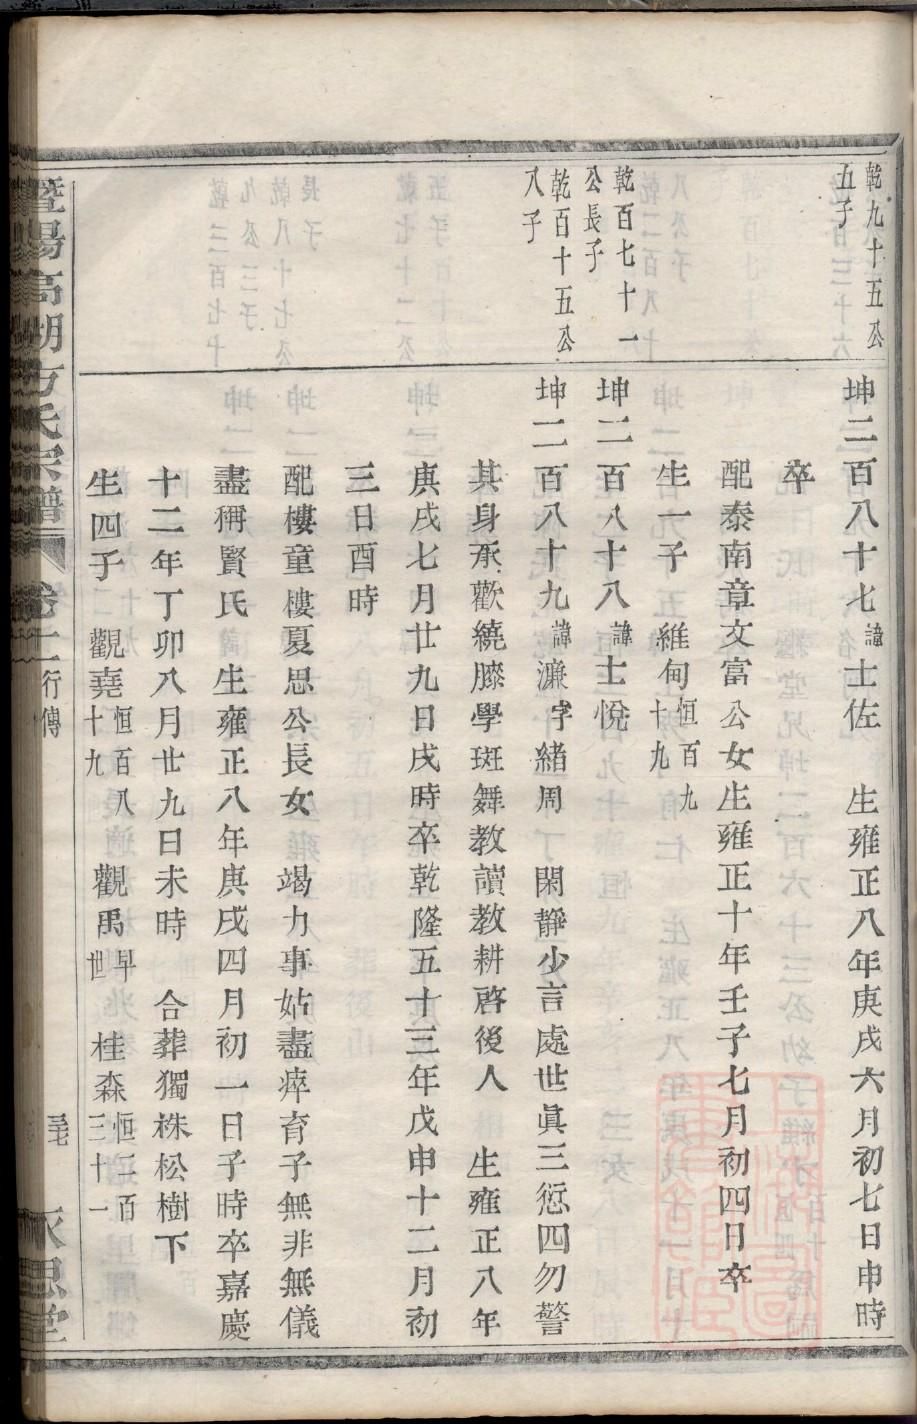 乾九十五公
五子
坤二百八十七諱士佐　生雍正八年庚戌六月初七日申時
卒
配泰南章文富公女生雍正十年壬子七月初四日卒
生一子　維甸恒百九十九
乾百七十一
公長子
坤二百八十八諱士悅
乾百十五公
八子
坤二百八十九諱濂字緒周　閑靜少言處世眞三愆四勿警
其身承歡繞膝學斑舞教讀教耕啓後人　生雍正八年
庚戌七月廿九日戌時卒乾隆五十三年戊申十二月初
三日酉時
配樓童樓夏思公長女　竭力事姑盡瘁育子無非無儀
盡稱賢氏　生雍正八年庚戌四月初一日子時卒嘉慶
十二年丁卯八月廿九日未時　合葬獨株松樹下
生四子　觀堯恒百八十九　觀禹早世　桂森恒二百三十一
暨陽高湖方氏宗譜　卷二行傳　永思堂